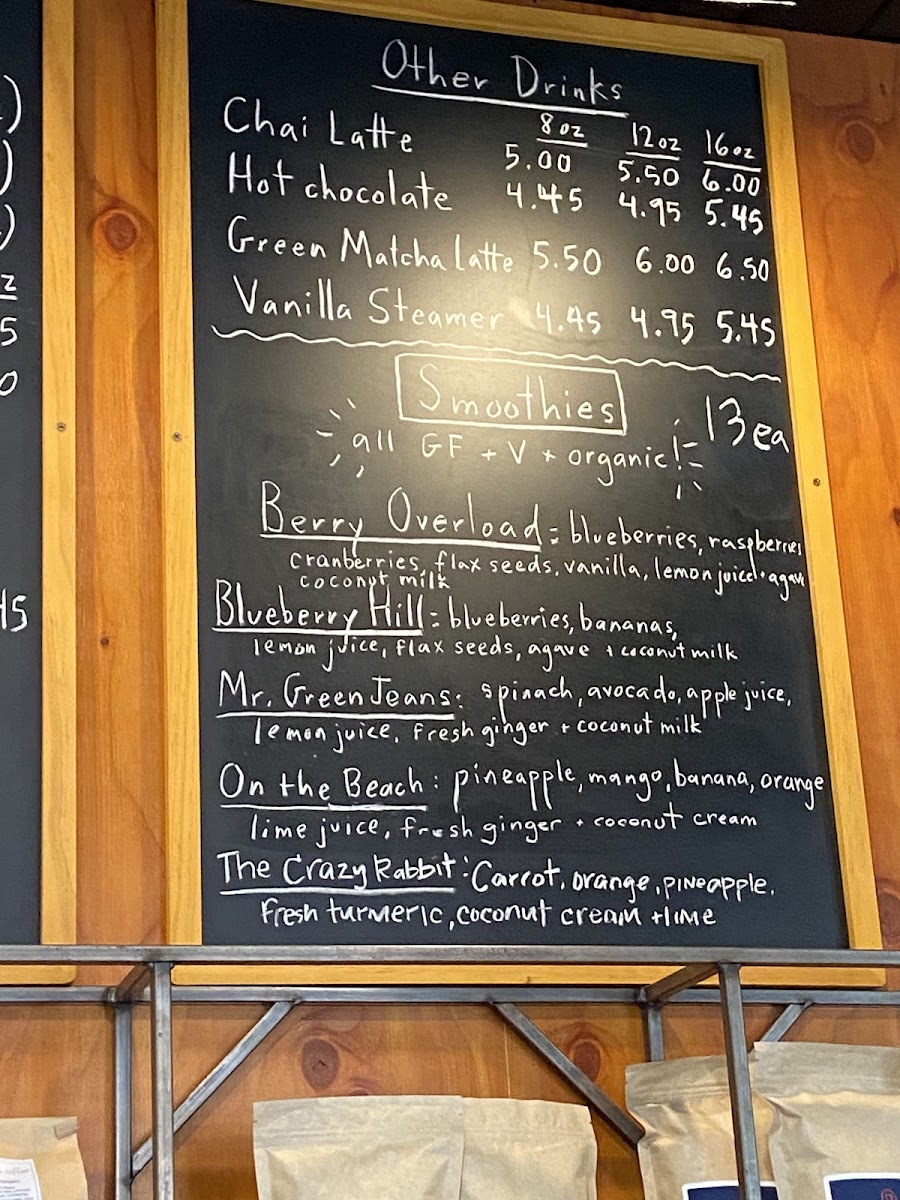 Other Drinks
8oz 12oz 16oz
Chai Latte 5.00 5.50 6.00
Hot chocolate 4.45 4.95 5.45
Green Matcha Latte 5.50 6.00 6.50
Vanilla Steamer 4.45 4.95 5.45
Smoothies 13ea
all GF + V + organic!
Berry Overload = blueberries, raspberries
cranberries, flax seeds, vanilla, lemon juice + agave
coconut milk
Blueberry Hill = blueberries, bananas,
lemon juice, flax seeds, agave + coconut milk
Mr. Green Jeans: spinach, avocado, apple juice,
lemon juice, fresh ginger + coconut milk
On the Beach: pineapple, mango, banana, orange
lime juice, fresh ginger + coconut cream
The Crazy Rabbit: Carrot, orange, pineapple,
fresh turmeric, coconut cream + lime